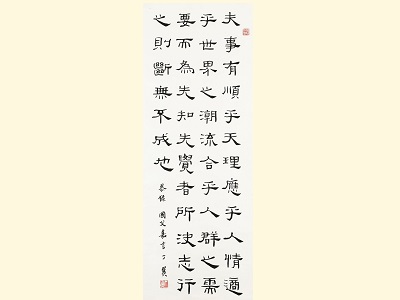 夫事有順乎天理應乎人情適
乎世界之潮流合乎人群之需
要而為先知先覺者所決志行
之則斷無不成也
恭錄 國父嘉言 丁